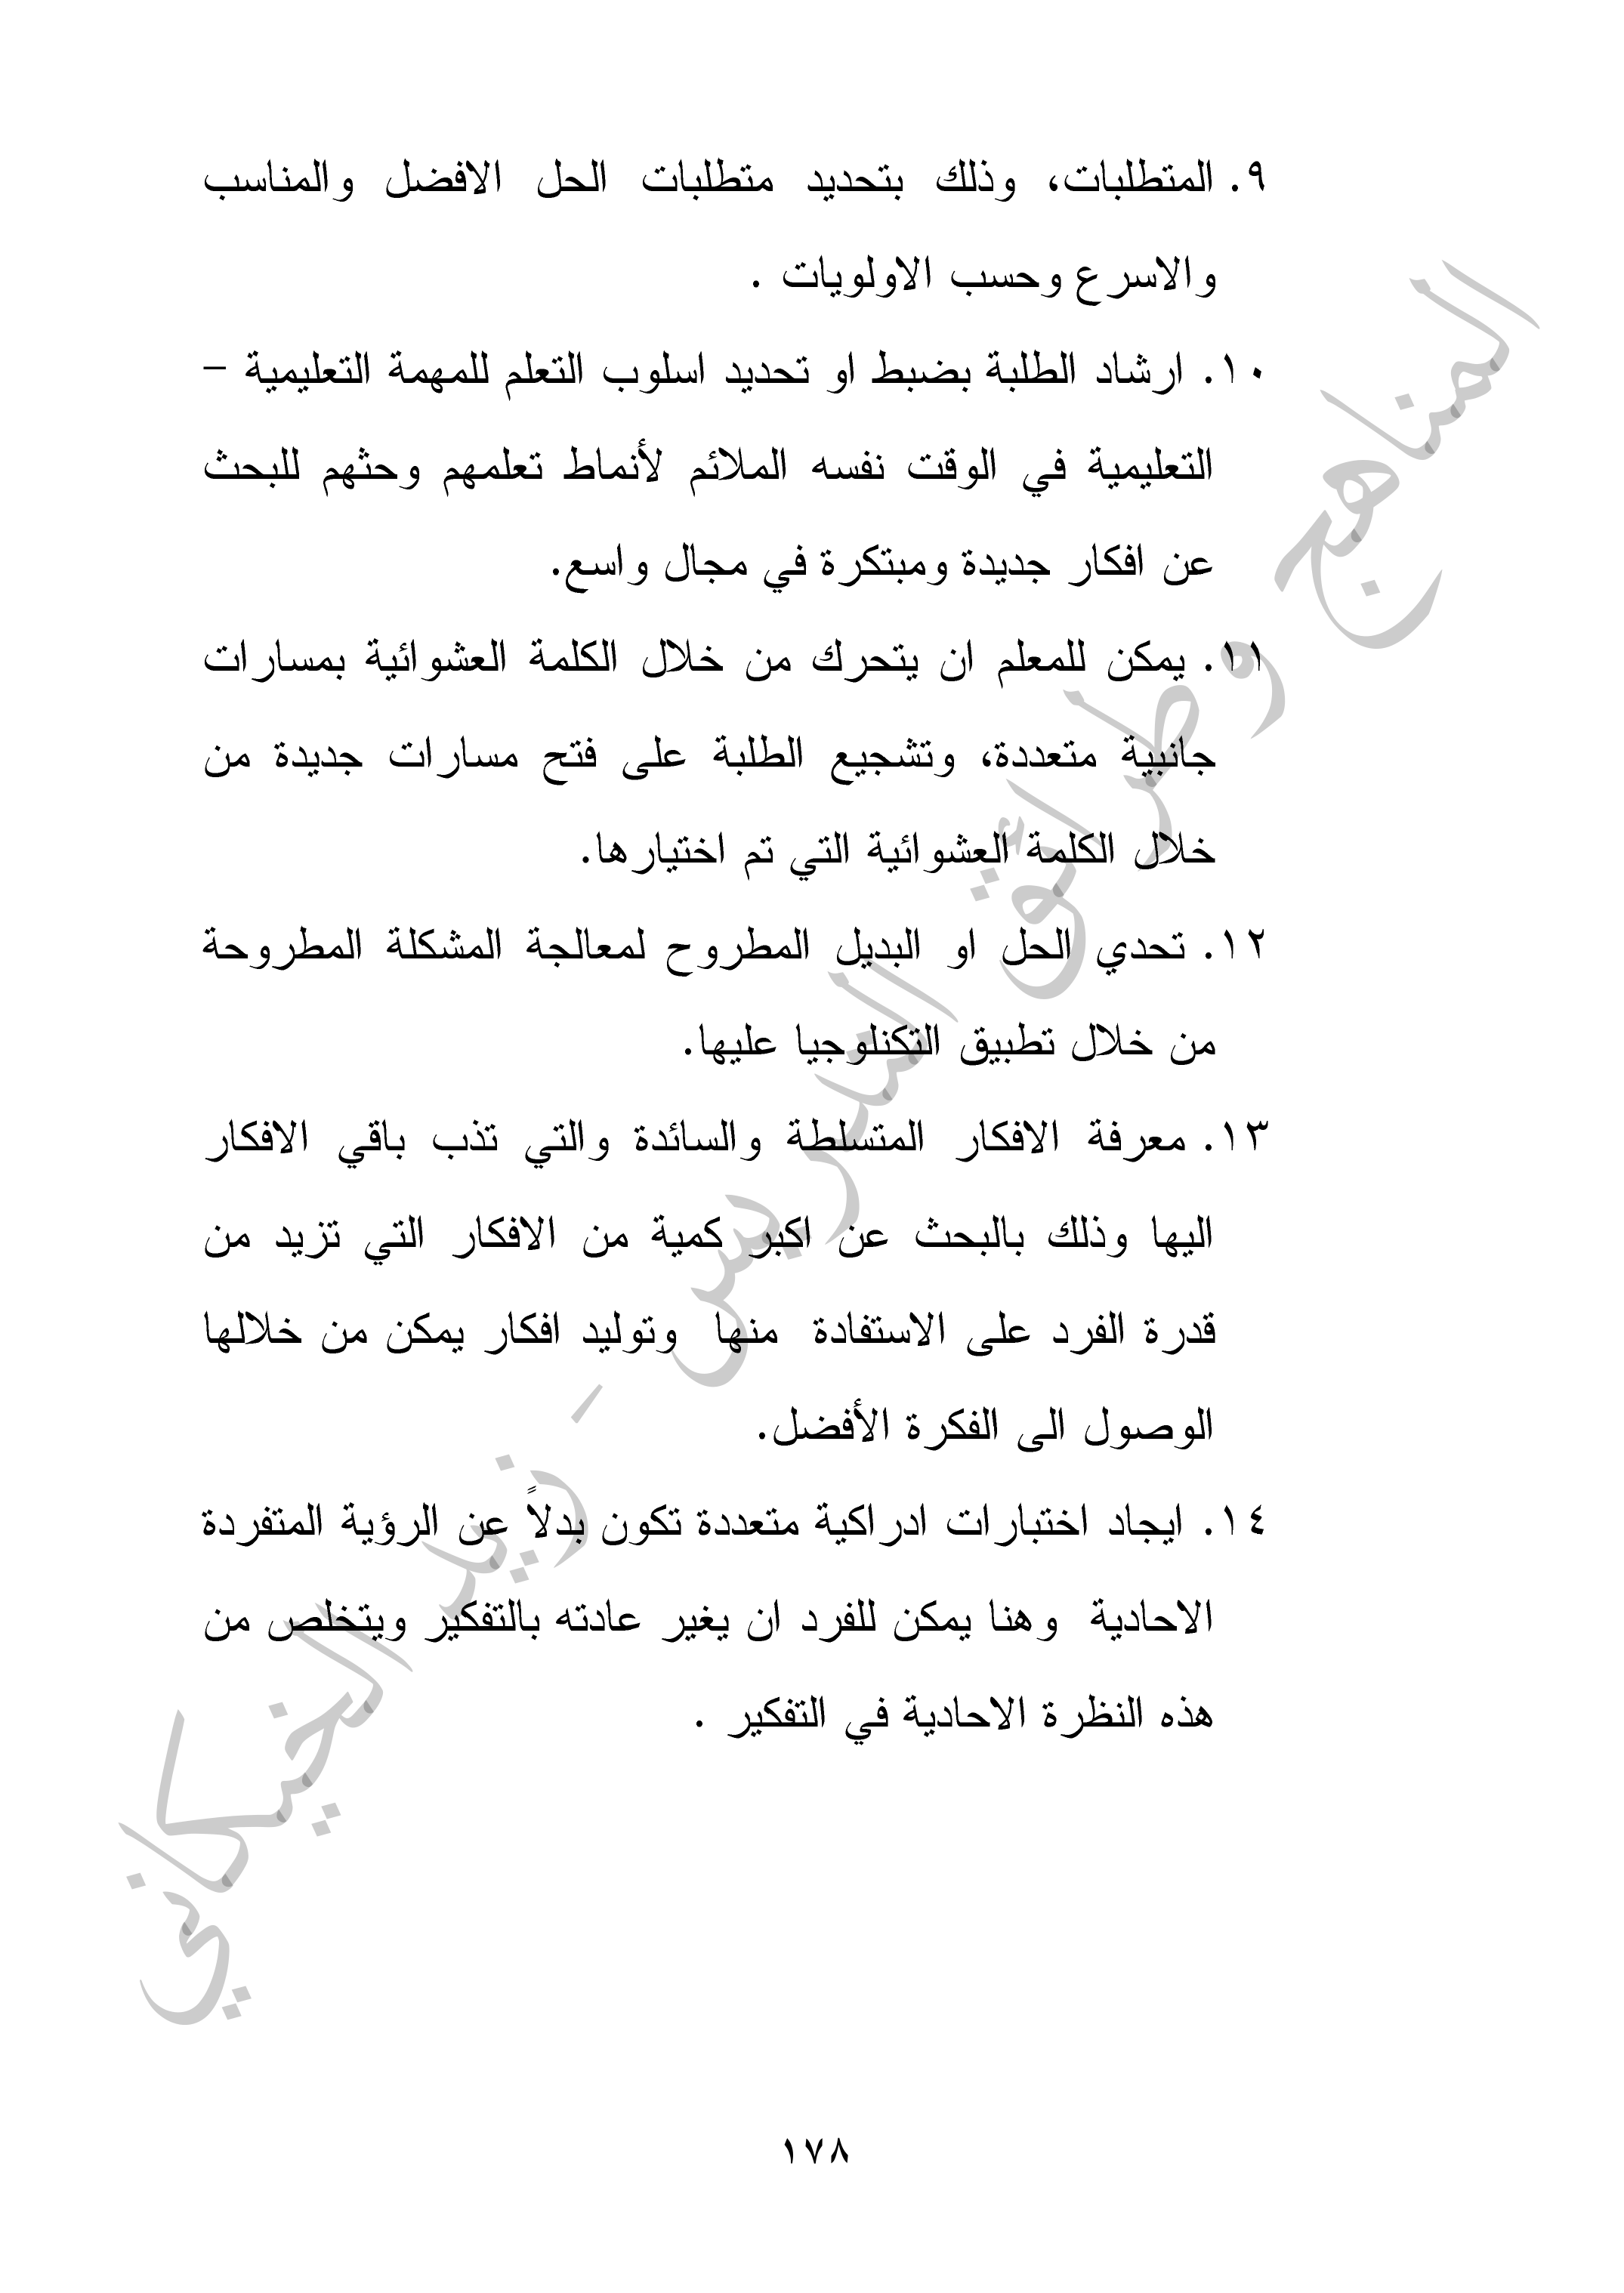 ٩. المتطلبات، وذلك بتحديد متطلبات الحل الافضل والمناسب
والاسرع وحسب الاولويات .
١٠. ارشاد الطلبة بضبط او تحديد اسلوب التعلم للمهمة التعليمية –
التعليمية في الوقت نفسه الملائم لأنماط تعلمهم وحثهم للبحث
عن افكار جديدة ومبتكرة في مجال واسع.
١١. يمكن للمعلم ان يتحرك من خلال الكلمة العشوائية بمسارات
جانبية متعددة، وتشجيع الطلبة على فتح مسارات جديدة من
خلال الكلمة العشوائية التي تم اختيارها.
١٢. تحدي الحل او البديل المطروح لمعالجة المشكلة المطروحة
من خلال تطبيق التكنلوجيا عليها.
١٣. معرفة الافكار المتسلطة والسائدة والتي تذب باقي الافكار
اليها وذلك بالبحث عن اكبر كمية من الافكار التي تزيد من
قدرة الفرد على الاستفادة منها وتوليد افكار يمكن من خلالها
الوصول الى الفكرة الأفضل.
١٤. ايجاد اختبارات ادراكية متعددة تكون بدلاً عن الرؤية المتفردة
الاحادية وهنا يمكن للفرد ان يغير عادته بالتفكير ويتخلص من
هذه النظرة الاحادية في التفكير .
المناهج وطرائق التدريس - زيد الخيكاني
١٧٨